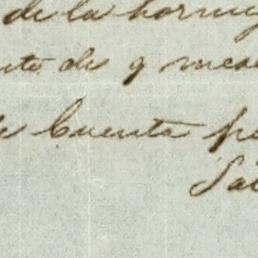 de la hormig
nto de 9 mes
de Cuenta po
Sa